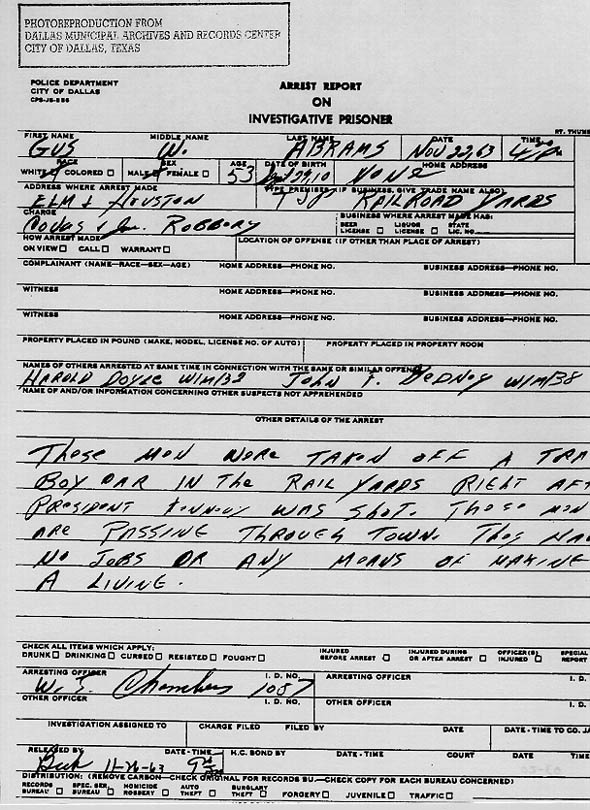 PHOTOREPRODUCTION FROM
DALLAS MUNICIPAL ARCHIVES AND RECORDS CENTER
CITY OF DALLAS, TEXAS
POLICE DEPARTMENT
CITY OF DALLAS
ARREST REPORT
ON
INVESTIGATIVE PRISONER
RT. THUMB
FIRST NAME MIDDLE NAME LAST NAME DATE TIME
GUS W. ABRAMS NOV 22, 63
RACE SEX AGE DATE OF BIRTH HOME ADDRESS
WHITE COLORED MALE FEMALE 53 NONE
ADDRESS WHERE ARREST MADE TYPE PREMISES (IF BUSINESS, GIVE TRADE NAME ALSO)
ELM & HOUSTON RAILROAD YARDS
CHARGE BUSINESS WHERE ARREST MADE HAS:
Robbery BEER LICENSE LIQUOR LICENSE STATE LIC. NO.
HOW ARREST MADE LOCATION OF OFFENSE (IF OTHER THAN PLACE OF ARREST)
ON VIEW CALL WARRANT
COMPLAINANT (NAME—RACE—SEX—AGE) HOME ADDRESS—PHONE NO. BUSINESS ADDRESS—PHONE NO.
WITNESS HOME ADDRESS—PHONE NO. BUSINESS ADDRESS—PHONE NO.
WITNESS HOME ADDRESS—PHONE NO. BUSINESS ADDRESS—PHONE NO.
PROPERTY PLACED IN POUND (MAKE, MODEL, LICENSE NO. OF AUTO) PROPERTY PLACED IN PROPERTY ROOM
NAMES OF OTHERS ARRESTED AT SAME TIME IN CONNECTION WITH THE SAME OR SIMILAR OFFENSE
HAROLD DOYLE W/M/32 JOHN F. GEDNEY W/M/38
NAME OF AND/OR INFORMATION CONCERNING OTHER SUSPECTS NOT APPREHENDED
OTHER DETAILS OF THE ARREST
These men were taken off a tra
boy car in the rail yards right aft
President Kennedy was shot. These men
are passing through town. They have
no jobs or any means of making
a living.
CHECK ALL ITEMS WHICH APPLY:
DRUNK DRINKING CURSED RESISTED FOUGHT INJURED BEFORE ARREST INJURED DURING OR AFTER ARREST OFFICER(S) INJURED SPECIAL REPORT
ARRESTING OFFICER I. D. NO. ARRESTING OFFICER I. D.
Chambers 1087
OTHER OFFICER I. D. NO. OTHER OFFICER I. D.
INVESTIGATION ASSIGNED TO CHARGE FILED FILED BY DATE DATE - TIME TO CO. JA
RELEASED BY DATE - TIME H.C. BOND BY DATE - TIME COURT DATE TIME
11-26-63
DISTRIBUTION: (REMOVE CARBON—CHECK ORIGINAL FOR RECORDS BU.—CHECK COPY FOR EACH BUREAU CONCERNED)
RECORDS BUREAU SPEC. SER. BUREAU HOMICIDE ROBBERY AUTO THEFT BURGLARY THEFT FORGERY JUVENILE TRAFFIC